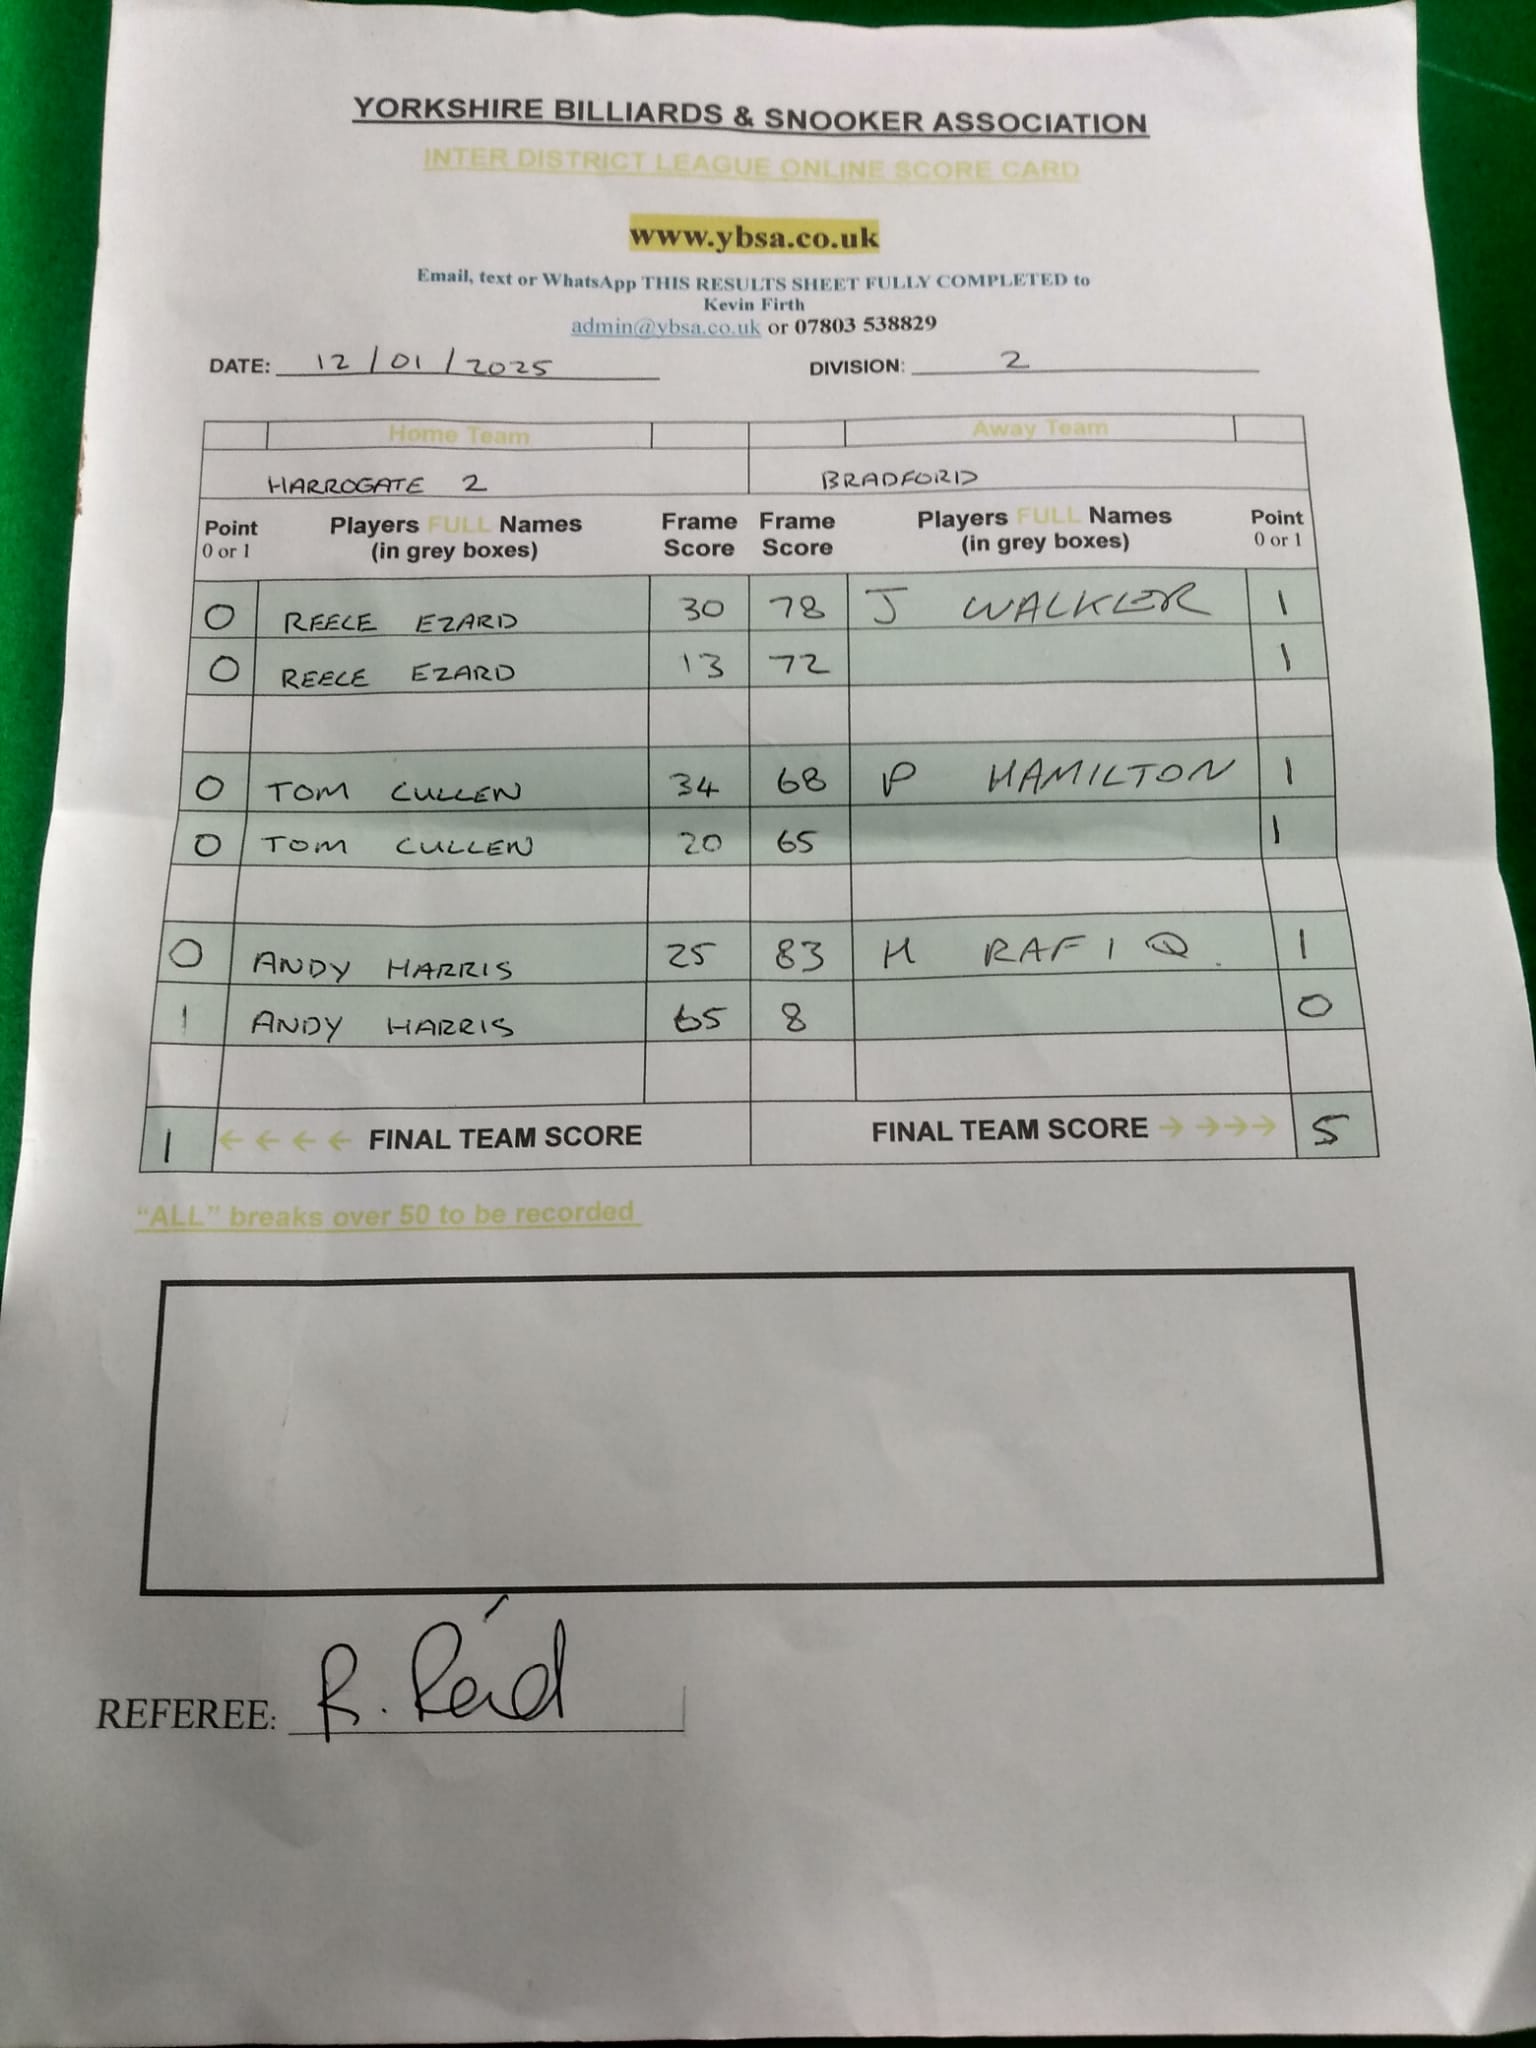 YORKSHIRE BILLIARDS & SNOOKER ASSOCIATION
INTER DISTRICT LEAGUE ONLINE SCORE CARD
www.ybsa.co.uk
Email, text or WhatsApp THIS RESULTS SHEET FULLY COMPLETED to
Kevin Firth
admin@ybsa.co.uk or 07803 538829
DATE: 12/01/2025 DIVISION: 2
Home Team Away Team
HARROGATE 2 BRADFORD
Point 0 or 1 Players FULL Names (in grey boxes) Frame Score Frame Score Players FULL Names (in grey boxes) Point 0 or 1
0 REECE EZARD 30 78 J WALKER 1
0 REECE EZARD 13 72 1
0 TOM CULLEN 34 68 P HAMILTON 1
0 TOM CULLEN 20 65 1
0 ANDY HARRIS 25 83 H RAFIQ. 1
1 ANDY HARRIS 65 8 0
1 ←←←← FINAL TEAM SCORE FINAL TEAM SCORE →→→→ 5
"ALL" breaks over 50 to be recorded
REFEREE: R. Reid